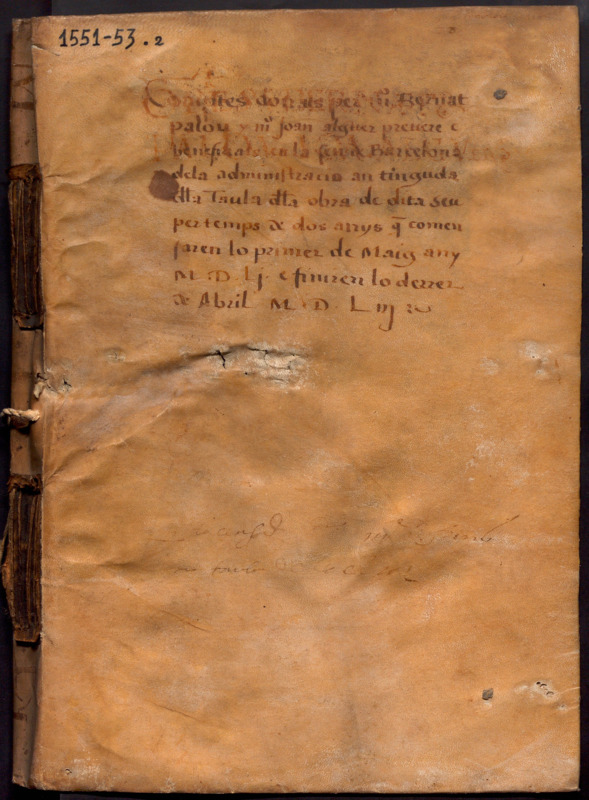 1551-53. 2
Comptes donats per mº Bernat
palou y mº Joan alguer prevere e
beneficiats en la seu de Barcelona
dela administracio an tinguda
dlla Taula dlla obra de dita seu
per temps de dos anys q̃ comen
saren lo primer de Maig any
M D Lj e finiren lo derrer
de Abril M D L iij